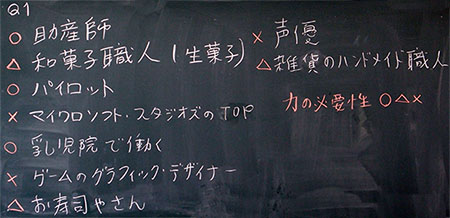 Q1
○ 助産師
△ 和菓子職人(生菓子)
○ パイロット
× マイクロソフト・スタジオズのTOP
○ 乳児院で働く
× ゲームのグラフィック・デザイナー
△ お寿司やさん
× 声優
△ 雑貨のハンドメイド職人
力の必要性 ○△×